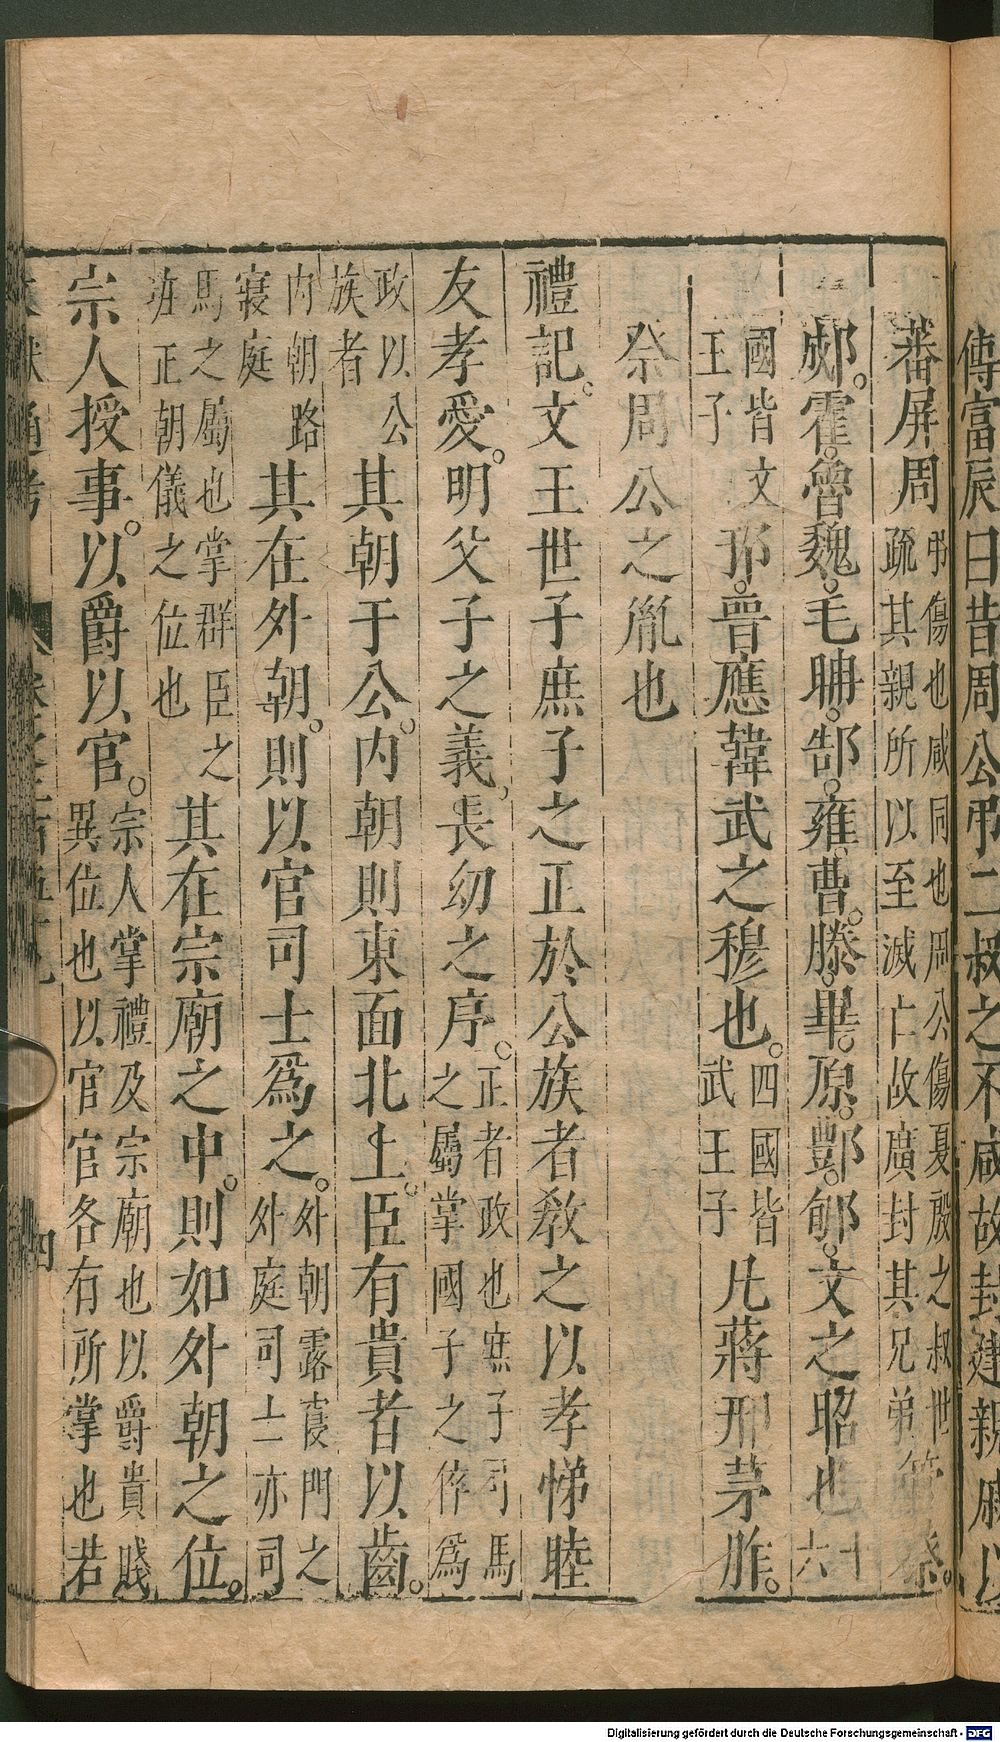 傳富辰曰昔周公弔二叔之不咸故封建親戚以
蕃屏周弔傷也咸同也周公傷夏殷之叔世疏其親所以至滅亡故廣封其兄弟管蔡
郕霍魯魏毛聃郜雍曹滕畢原酆郇文之昭也十六
國皆文王子邘晉應韓武之穆也四國皆武王子凡蔣邢茅胙
祭周公之胤也
禮記文王世子庶子之正於公族者教之以孝悌睦
友孝愛明父子之義長幼之序正者政也庶子司馬之屬掌國子之倅為
政以公族者其朝于公內朝則東面北上臣有貴者以齒
內朝路寢庭其在外朝則以官司士為之外朝露寢門之外庭司士亦司
馬之屬也掌群臣之班正朝儀之位也其在宗廟之中則如外朝之位
宗人授事以爵以官宗人掌禮及宗廟也以爵貴賤異位也以官官各有所掌也若
四
Digitalisierung gefördert durch die Deutsche Forschungsgemeinschaft - DFG